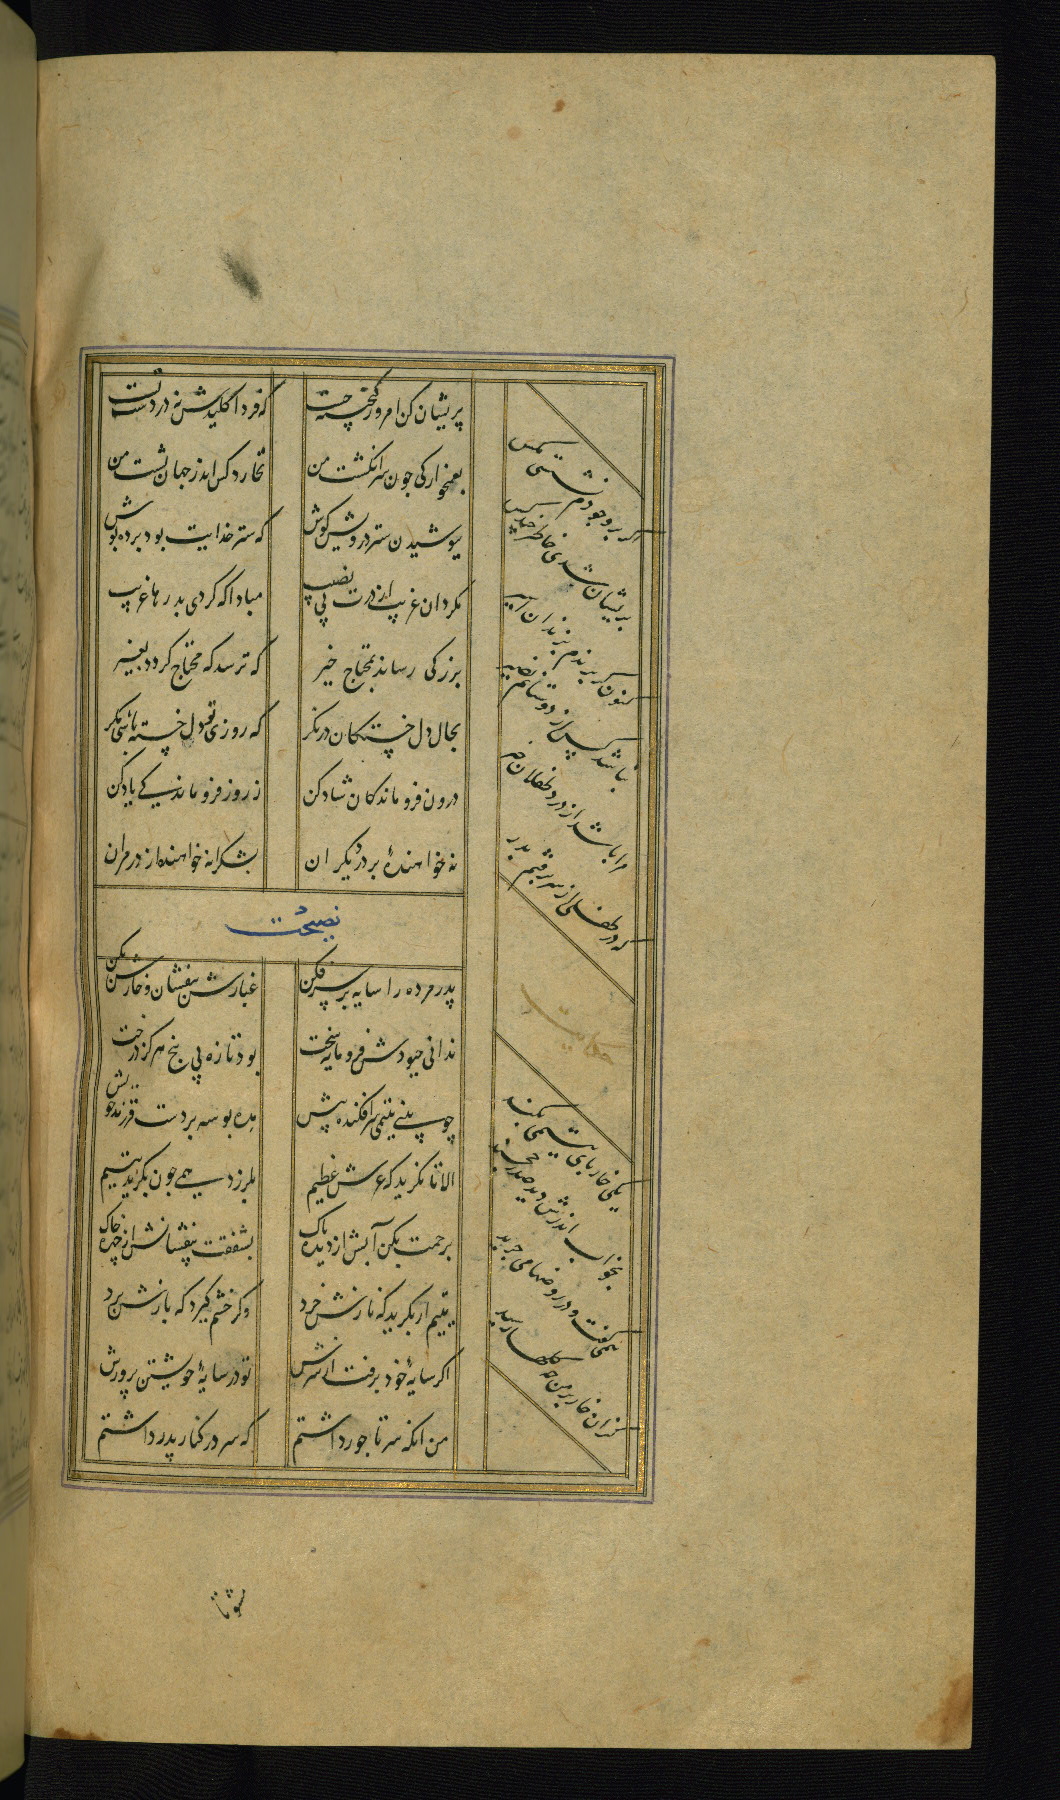 پریشان کن امروز گنجینه چست
که فردا کلیدش نه در دست تست
بغمخوارکی جون سر انکشت من
نخارد کس اندر جهان پشت من
بپوشیدن ستر درویش کوش
که ستر خدایت بود پرده پوش
مکردان غریب از درت بی نصیب
مبادا که کردی بدرها غریب
بزرکی رساند بمحتاج خیر
که ترسد که محتاج کردد بغیر
بحال دل خستکان در نکر
که روزی تو دل خسته باشی مکر
درون فروماندکان شاد کن
ز روز فروماندکی یاد کن
نه خواهندهٔ بر در دیکران
بشکرانه خواهنده از در مران
نصیحت
پدر مرده را سایه بر سر فکن
غبارش بیفشان و خارش بکن
ندانی چبودش فرومایه سخت
بود تازه بی بیخ هرکز درخت
چو بینی یتیمی سر افکنده پیش
مده بوسه بر دست فرزند خویش
الا تا نکرید که عرش عظیم
بلرزد همی چون بکرید یتیم
برحمت بکن آبش از دیده پاک
بشفقت بیفشانش از چهره خاک
یتیم ار بکرید که نازش خرد
وکر خشم کیرد که بارش برد
اکر سایهٔ خود برفت از سرش
تو در سایهٔ خویشتن پرورش
من انکه سر تاجور داشتم
که سر در کنار پدر داشتم
اکر بر وجودم نشستی مکس
پریشان شدی خاطر چند کس
کنون کر بزندان برندم اسیر
نباشد کس از دوستانم نصیر
مرا باشد از درد طفلان خبر
که در طفلی از سر برفتم پدر
حکایت
یکی خار پای یتیمی بکند
بخواب اندرش دید صدر خجند
همی کفت و در روضها می چمید
کزان خار بر من چه کلها رسید